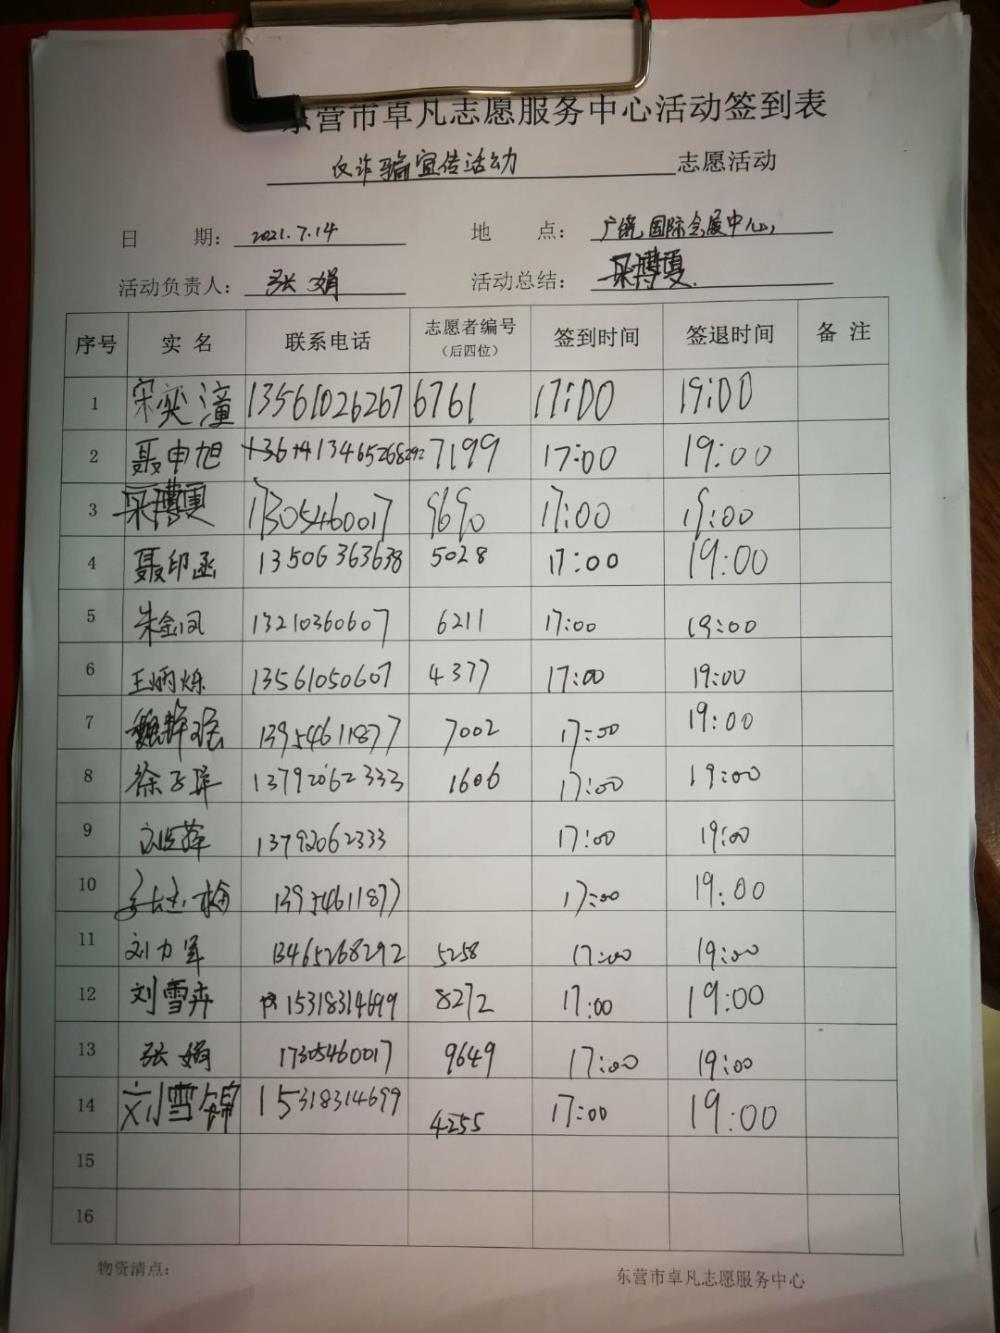 东营市卓凡志愿服务中心活动签到表
反诈骗宣传活动 志愿活动
日 期： 2021.7.14 地 点： 广饶国际会展中心
活动负责人： 张娟 活动总结： 博夏
序号 实 名 联系电话 志愿者编号（后四位） 签到时间 签退时间 备 注
1 宋奕潼 13561026267 6761 17:00 19:00
2 聂申旭 13465268292 7199 17:00 19:00
3 博夏 17305460017 9690 17:00 19:00
4 聂印函 13506363638 5028 17:00 19:00
5 朱金凤 13210360607 6211 17:00 19:00
6 王炳烁 13561050607 4377 17:00 19:00
7 13954611877 7002 17:00 19:00
8 徐子 13792062333 1606 17:00 19:00
9 刘 萍 13792062333 17:00 19:00
10 梅 13954611877 17:00 19:00
11 刘力军 13465268292 5258 17:00 19:00
12 刘雪卉 15318314699 8272 17:00 19:00
13 张娟 17305460017 9649 17:00 19:00
14 刘雪锦 15318314699 4255 17:00 19:00
15
16
物资清点： 东营市卓凡志愿服务中心